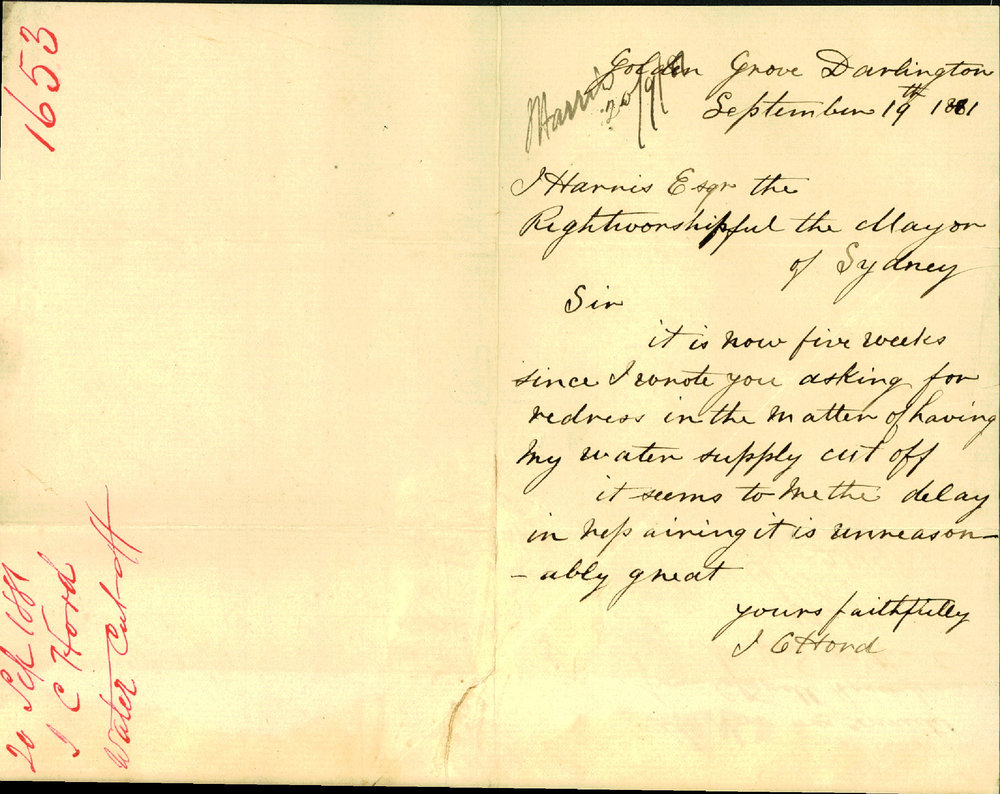 1653
20 Sep 1881
J C Hord
Water Cut off
Harris
20/9/81
Golden Grove Darlington
September 19th 1881
J Harris Esqr the
Rightworshipful the Mayor
of Sydney
Sir
it is now five weeks
since I wrote you asking for
redress in the matter of having
my water supply cut off
it seems to me the delay
in repairing it is unreason-
-ably great
yours faithfully
J C Hord